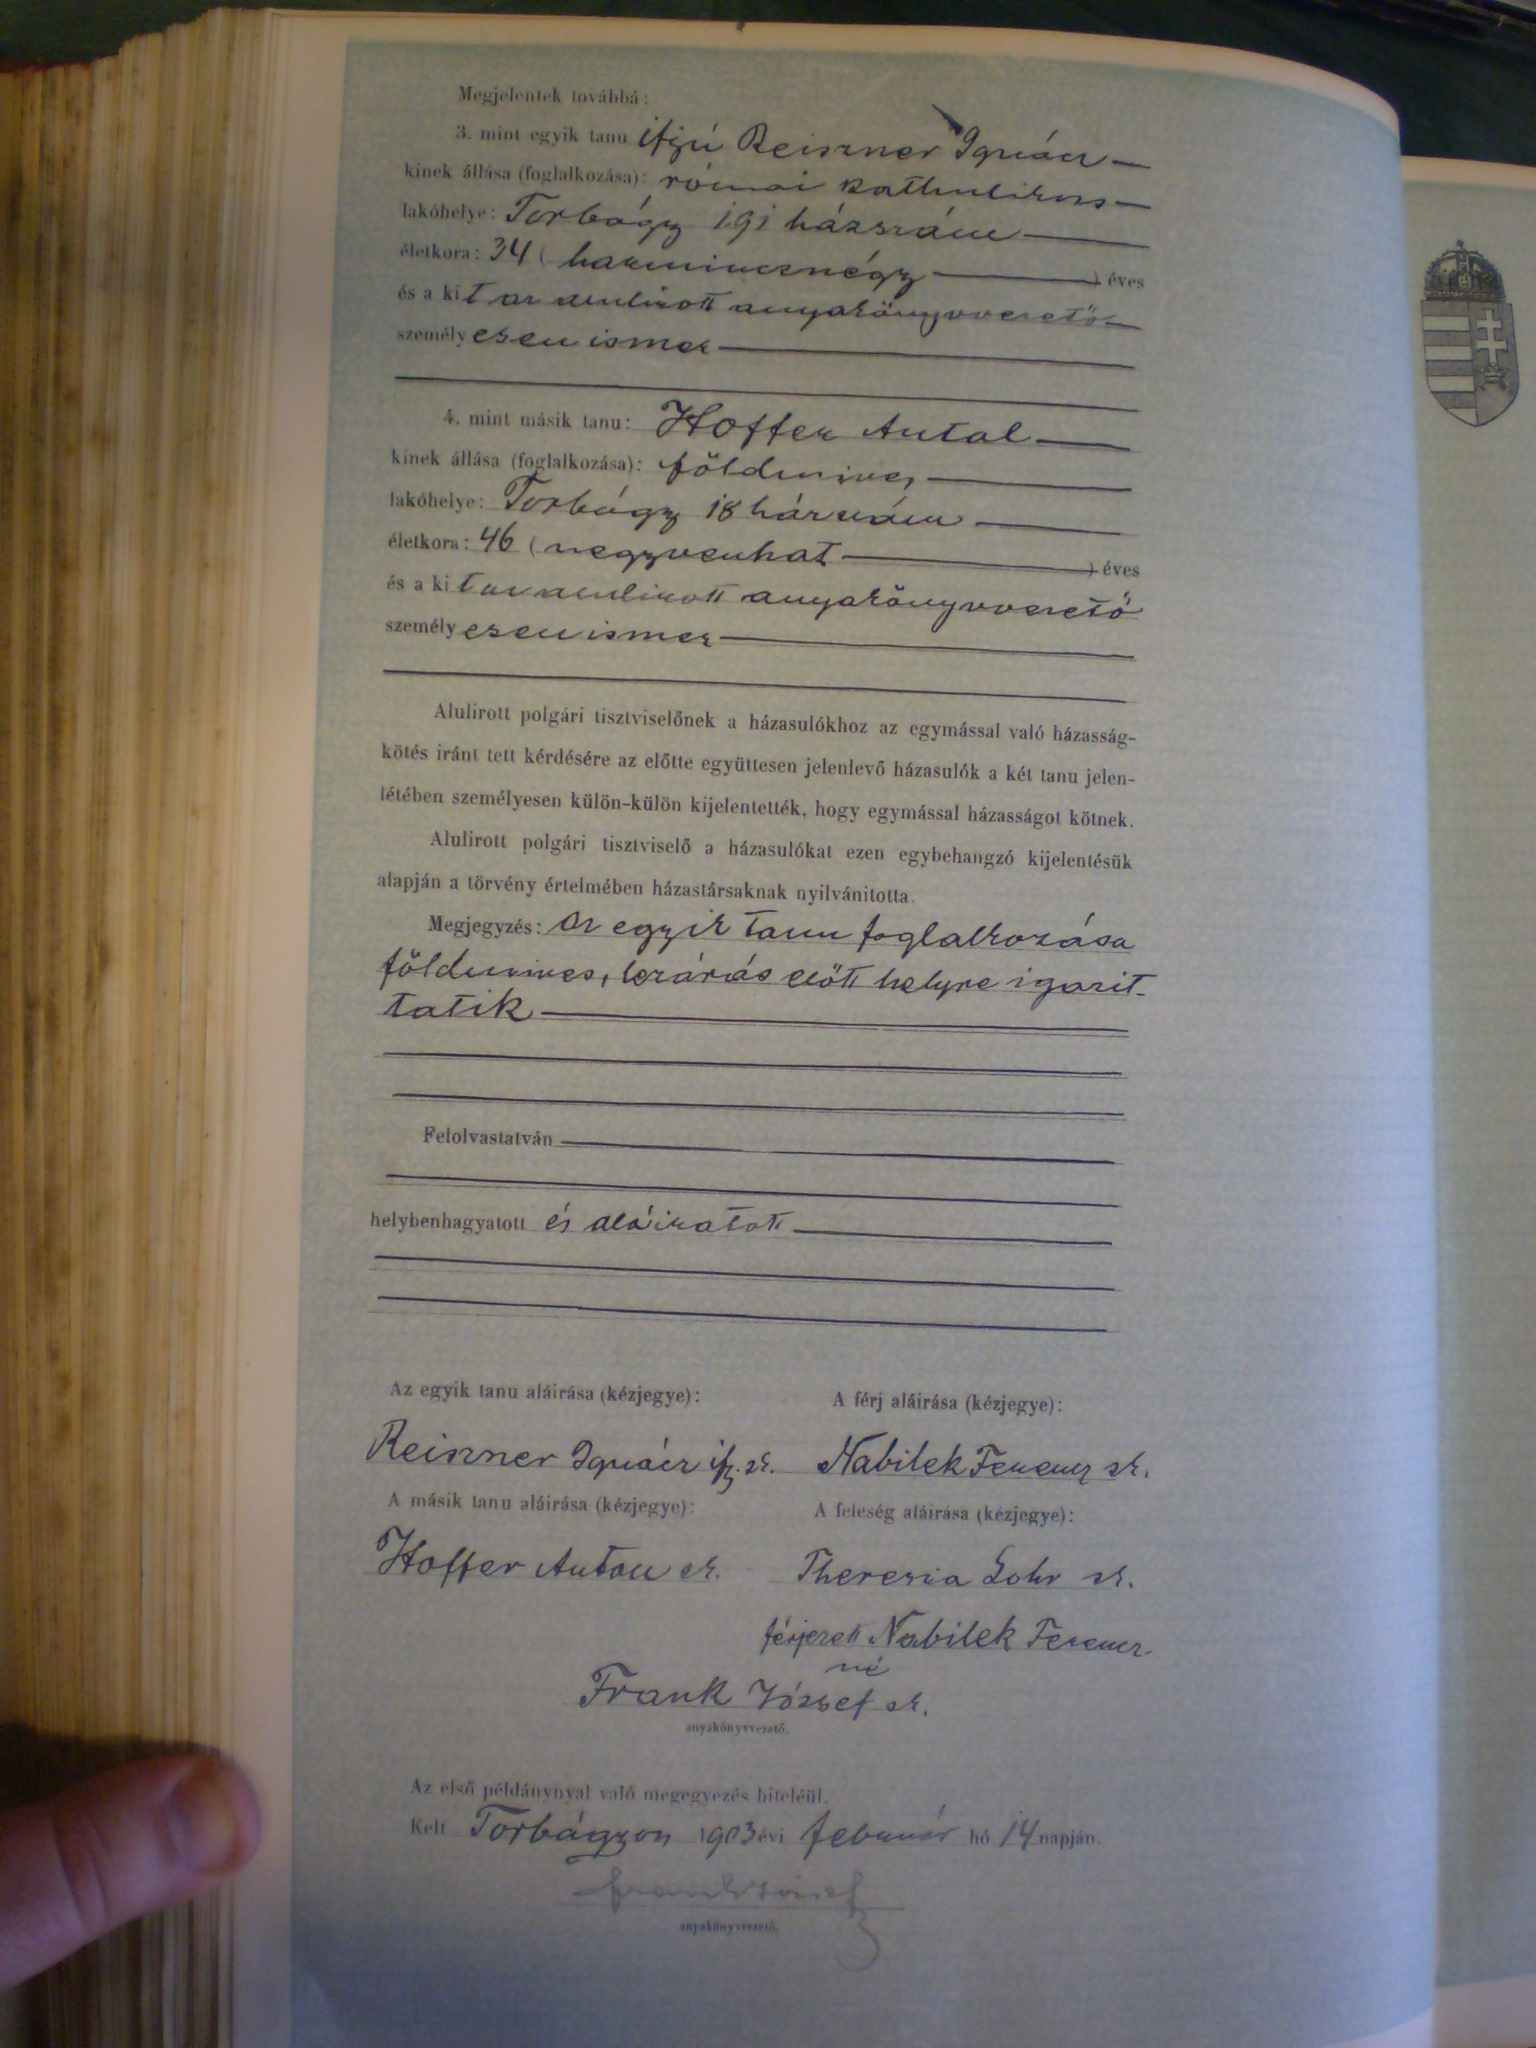 Megjelentek továbbá:
3. mint egyik tanu ifjú Reiszner Ignácz
kinek állása (foglalkozása): római katholikus
lakóhelye: Torbágy 191 házszám
életkora: 34 (harmincznégy) éves
és a kit az alulirott anyakönyvvezető
személyesen ismer
4. mint másik tanu: Hoffer Antal
kinek állása (foglalkozása): földmives
lakóhelye: Torbágy 18 házszám
életkora: 46 (negyvenhat) éves
és a kit az alulirott anyakönyvvezető
személyesen ismer
Alulirott polgári tisztviselőnek a házasulókhoz az egymással való házasság-
kötés iránt tett kérdésére az előtte együttesen jelenlevő házasulók a két tanu jelen-
létében személyesen külön-külön kijelentették, hogy egymással házasságot kötnek.
Alulirott polgári tisztviselő a házasulókat ezen egybehangzó kijelentésük
alapján a törvény értelmében házastársaknak nyilvánitotta.
Megjegyzés: Az egyik tanu foglalkozása
földmives, lezárás előtt helyre igazit-
tatik
Felolvastatván
helybenhagyatott és aláiratott
Az egyik tanu aláirása (kézjegye): A férj aláirása (kézjegye):
Reiszner Ignácz ifj. sk. Nabilek Ferencz sk.
A másik tanu aláirása (kézjegye): A feleség aláirása (kézjegye):
Hoffer Anton sk. Theresia Lohr sk.
férjezett Nabilek Ferencz-
né
Frank József sk.
anyakönyvvezető.
Az első példánynyal való megegyezés hiteléül.
Kelt Torbágyon 1903 évi február hó 14 napján.
Frank József
anyakönyvvezető.